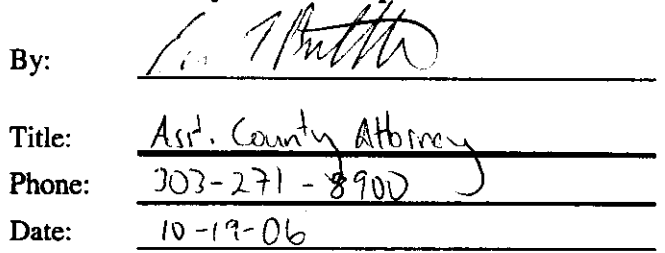 By:
Title: Asst. County Attorney
Phone: 303-271-8900
Date: 10-19-06